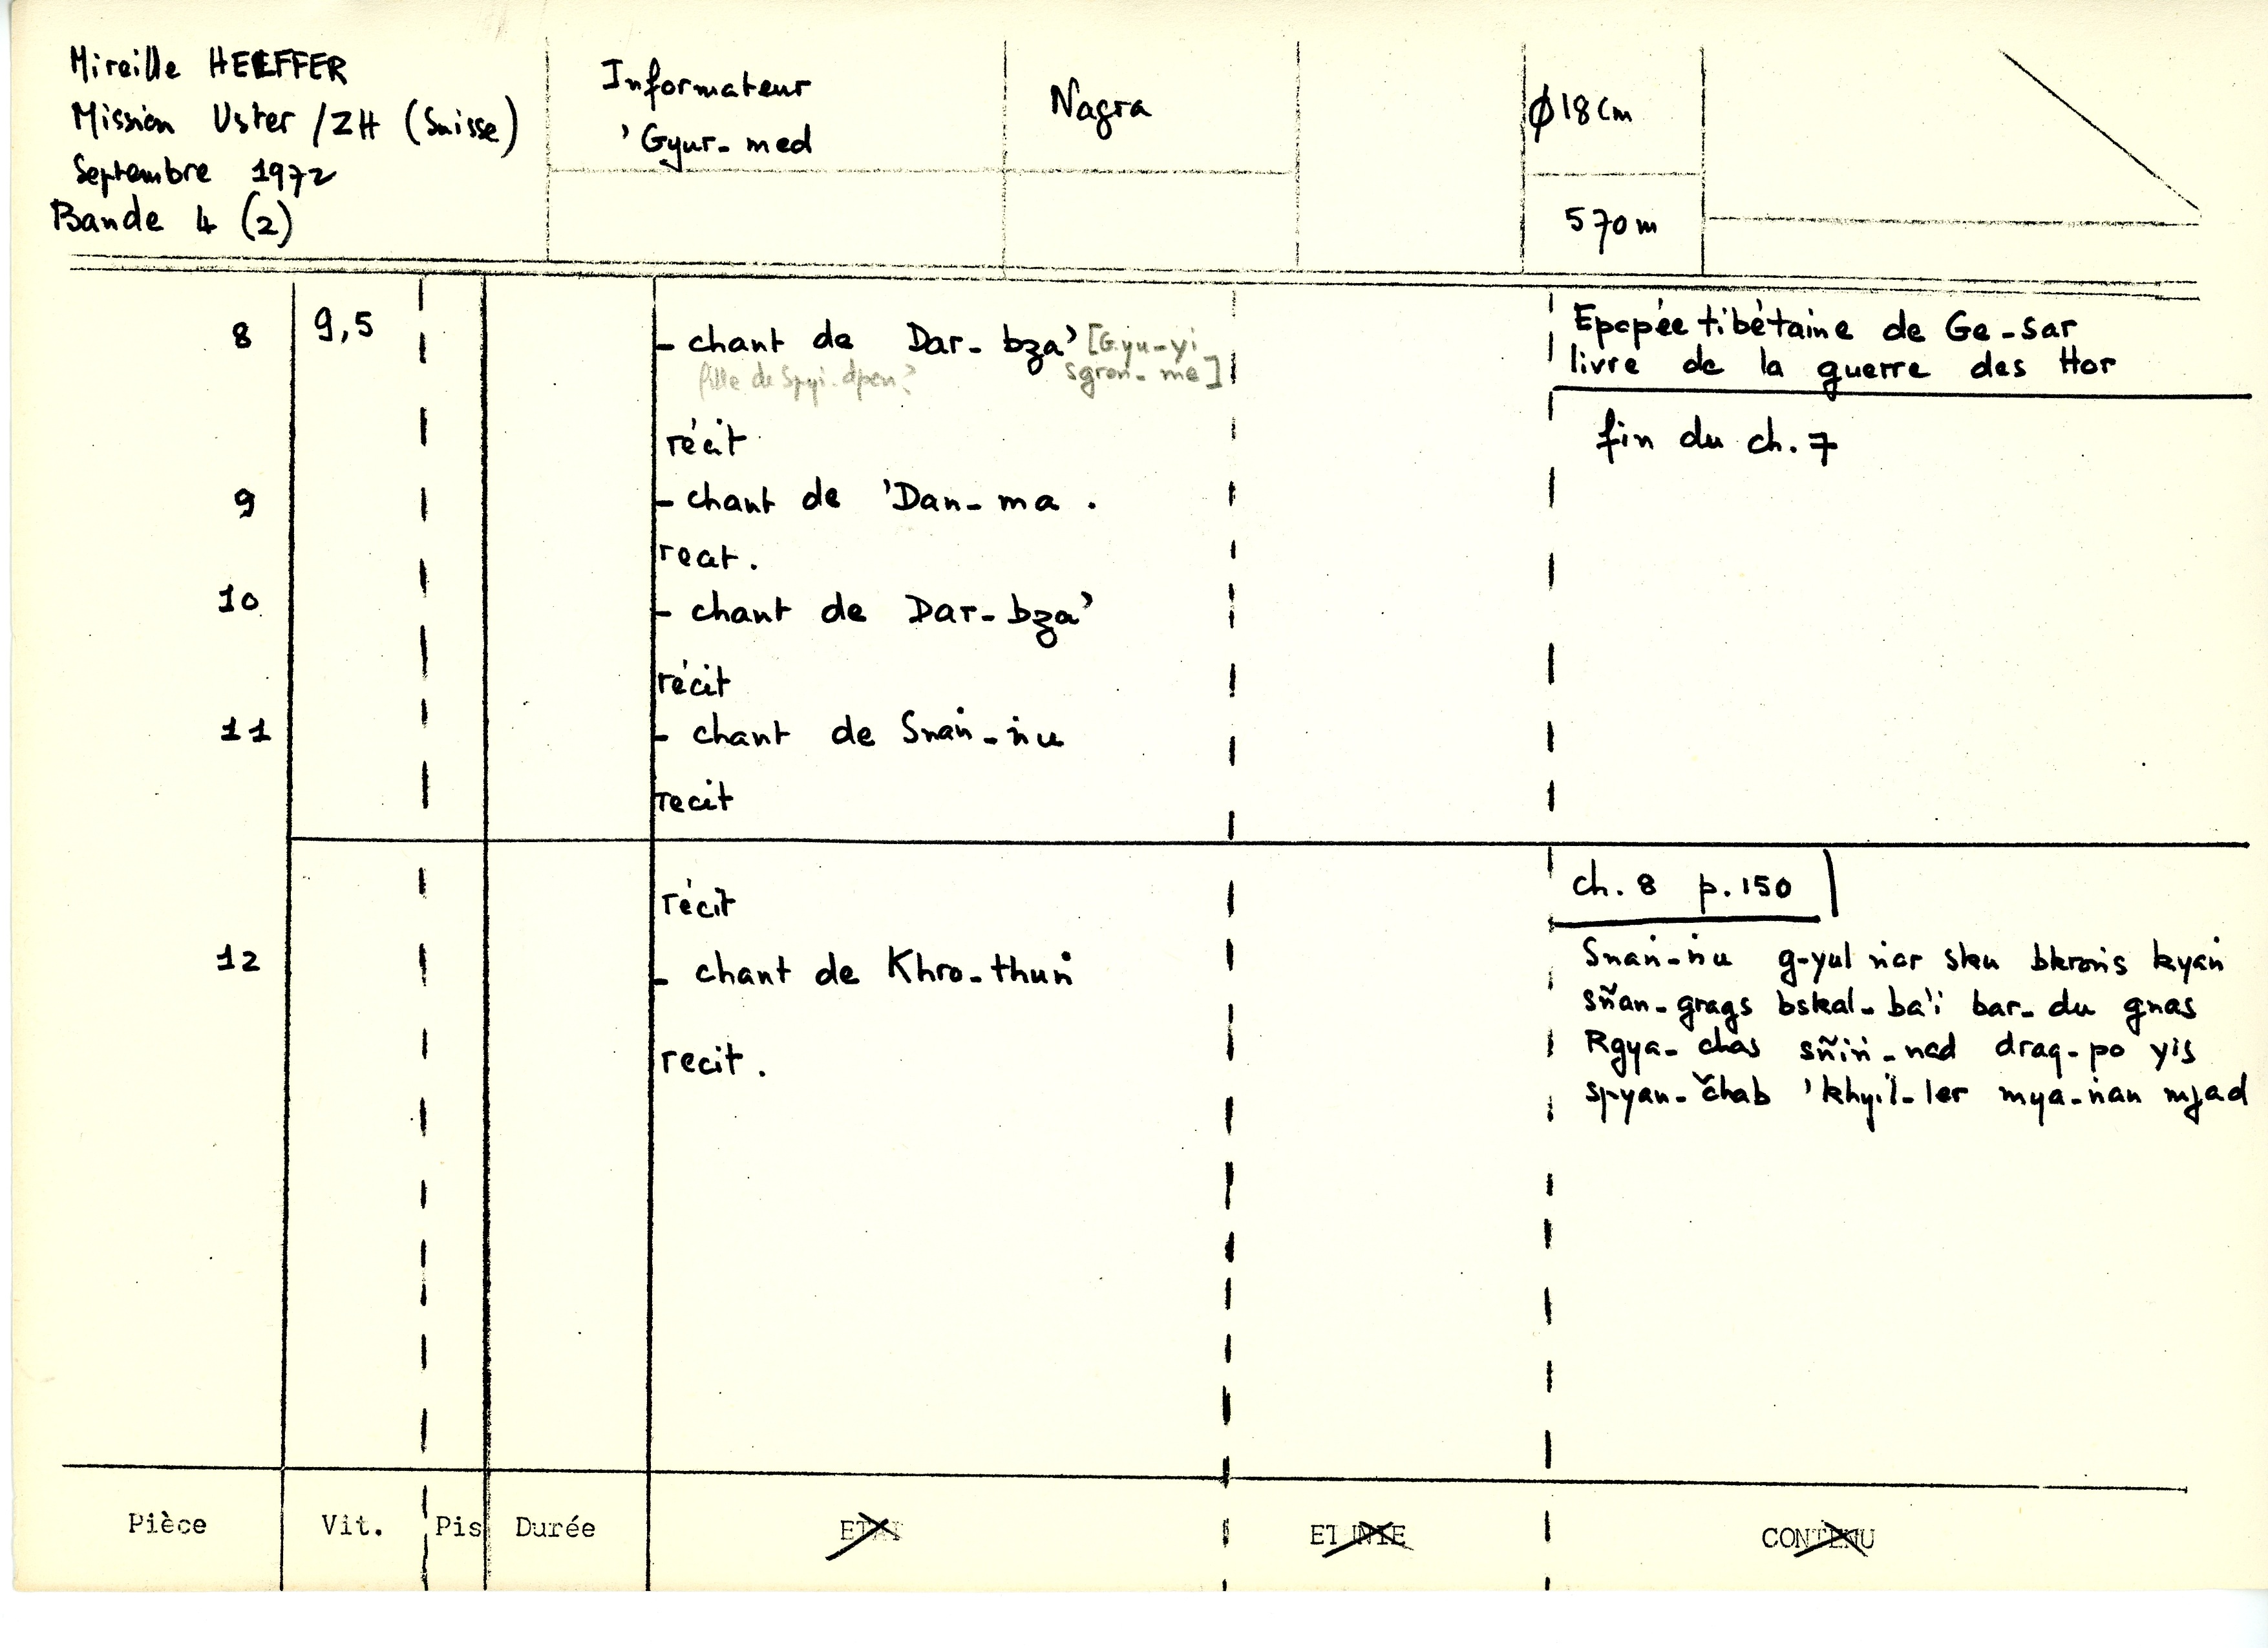 Mireille HELFFER
Mission Uster /ZH (Suisse)
Septembre 1972
Bande 4 (2)
Informateur
'Gyur-med
Nagra
Ø 18 cm
570 m
8 9,5 - chant de Dar-bza' [Gyu-yi
fille de Spyi-dpon? sgron-me]
Epopée tibétaine de Ge-sar
livre de la guerre des Hor
récit
fin du ch. 7
9 - chant de 'Dan-ma .
recit.
10 - chant de Dar-bza'
récit
11 - chant de Snaṅ-ṅu
recit
ch. 8 p. 150
récit
12 - chant de Khro-thuṅ
recit.
Snaṅ-ṅu g-yul ṅor sku bkroṅs kyaṅ
sñan-grags bskal-ba'i bar-du gnas
Rgya-chas sñiṅ-nad drag-po yis
spyan-čhab 'khyil-ler mya-ṅan mjad
Pièce Vit. Pis Durée ETAT ETHNIE CONTENU